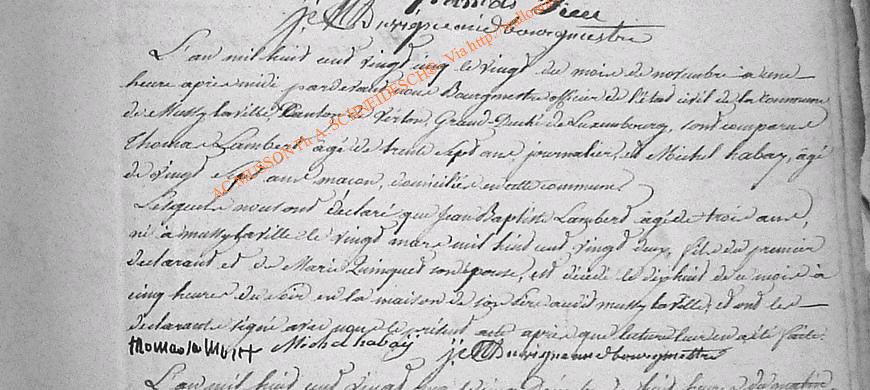 françois
j: N Buvignau bourgmestre
L'an mil huit cent vingt cinq le vingt du mois de novembre à une
heure après midi pardevant nous Bourgmestre officier de l'état civil de la commune
de Mussy la ville, Canton de Virton, Grand-Duché de Luxembourg, sont comparus
Thomas Lambert âgé de trente sept ans, journalier, et Michel habay, âgé
de vingt sept ans macon, domiciliés en cette commune
Lesquels nous ont déclaré que Jean Baptiste Lambert agé de trois ans,
né à mussy la ville le vingt mars mil huit cent vingt deux, fils du premier
declarant et de Marie Quinquet son épouse, est décédé le dix huit de ce mois à
cinq heures du soir en la maison de son père audit mussy la ville, et ont les
declarants signé avec nous le présent acte après que lecture leur en a été faite.
thomas la Michel habay j: bourgmestre
L'an mil huit cent vingt cinq le vingt heures du matin
Via http: